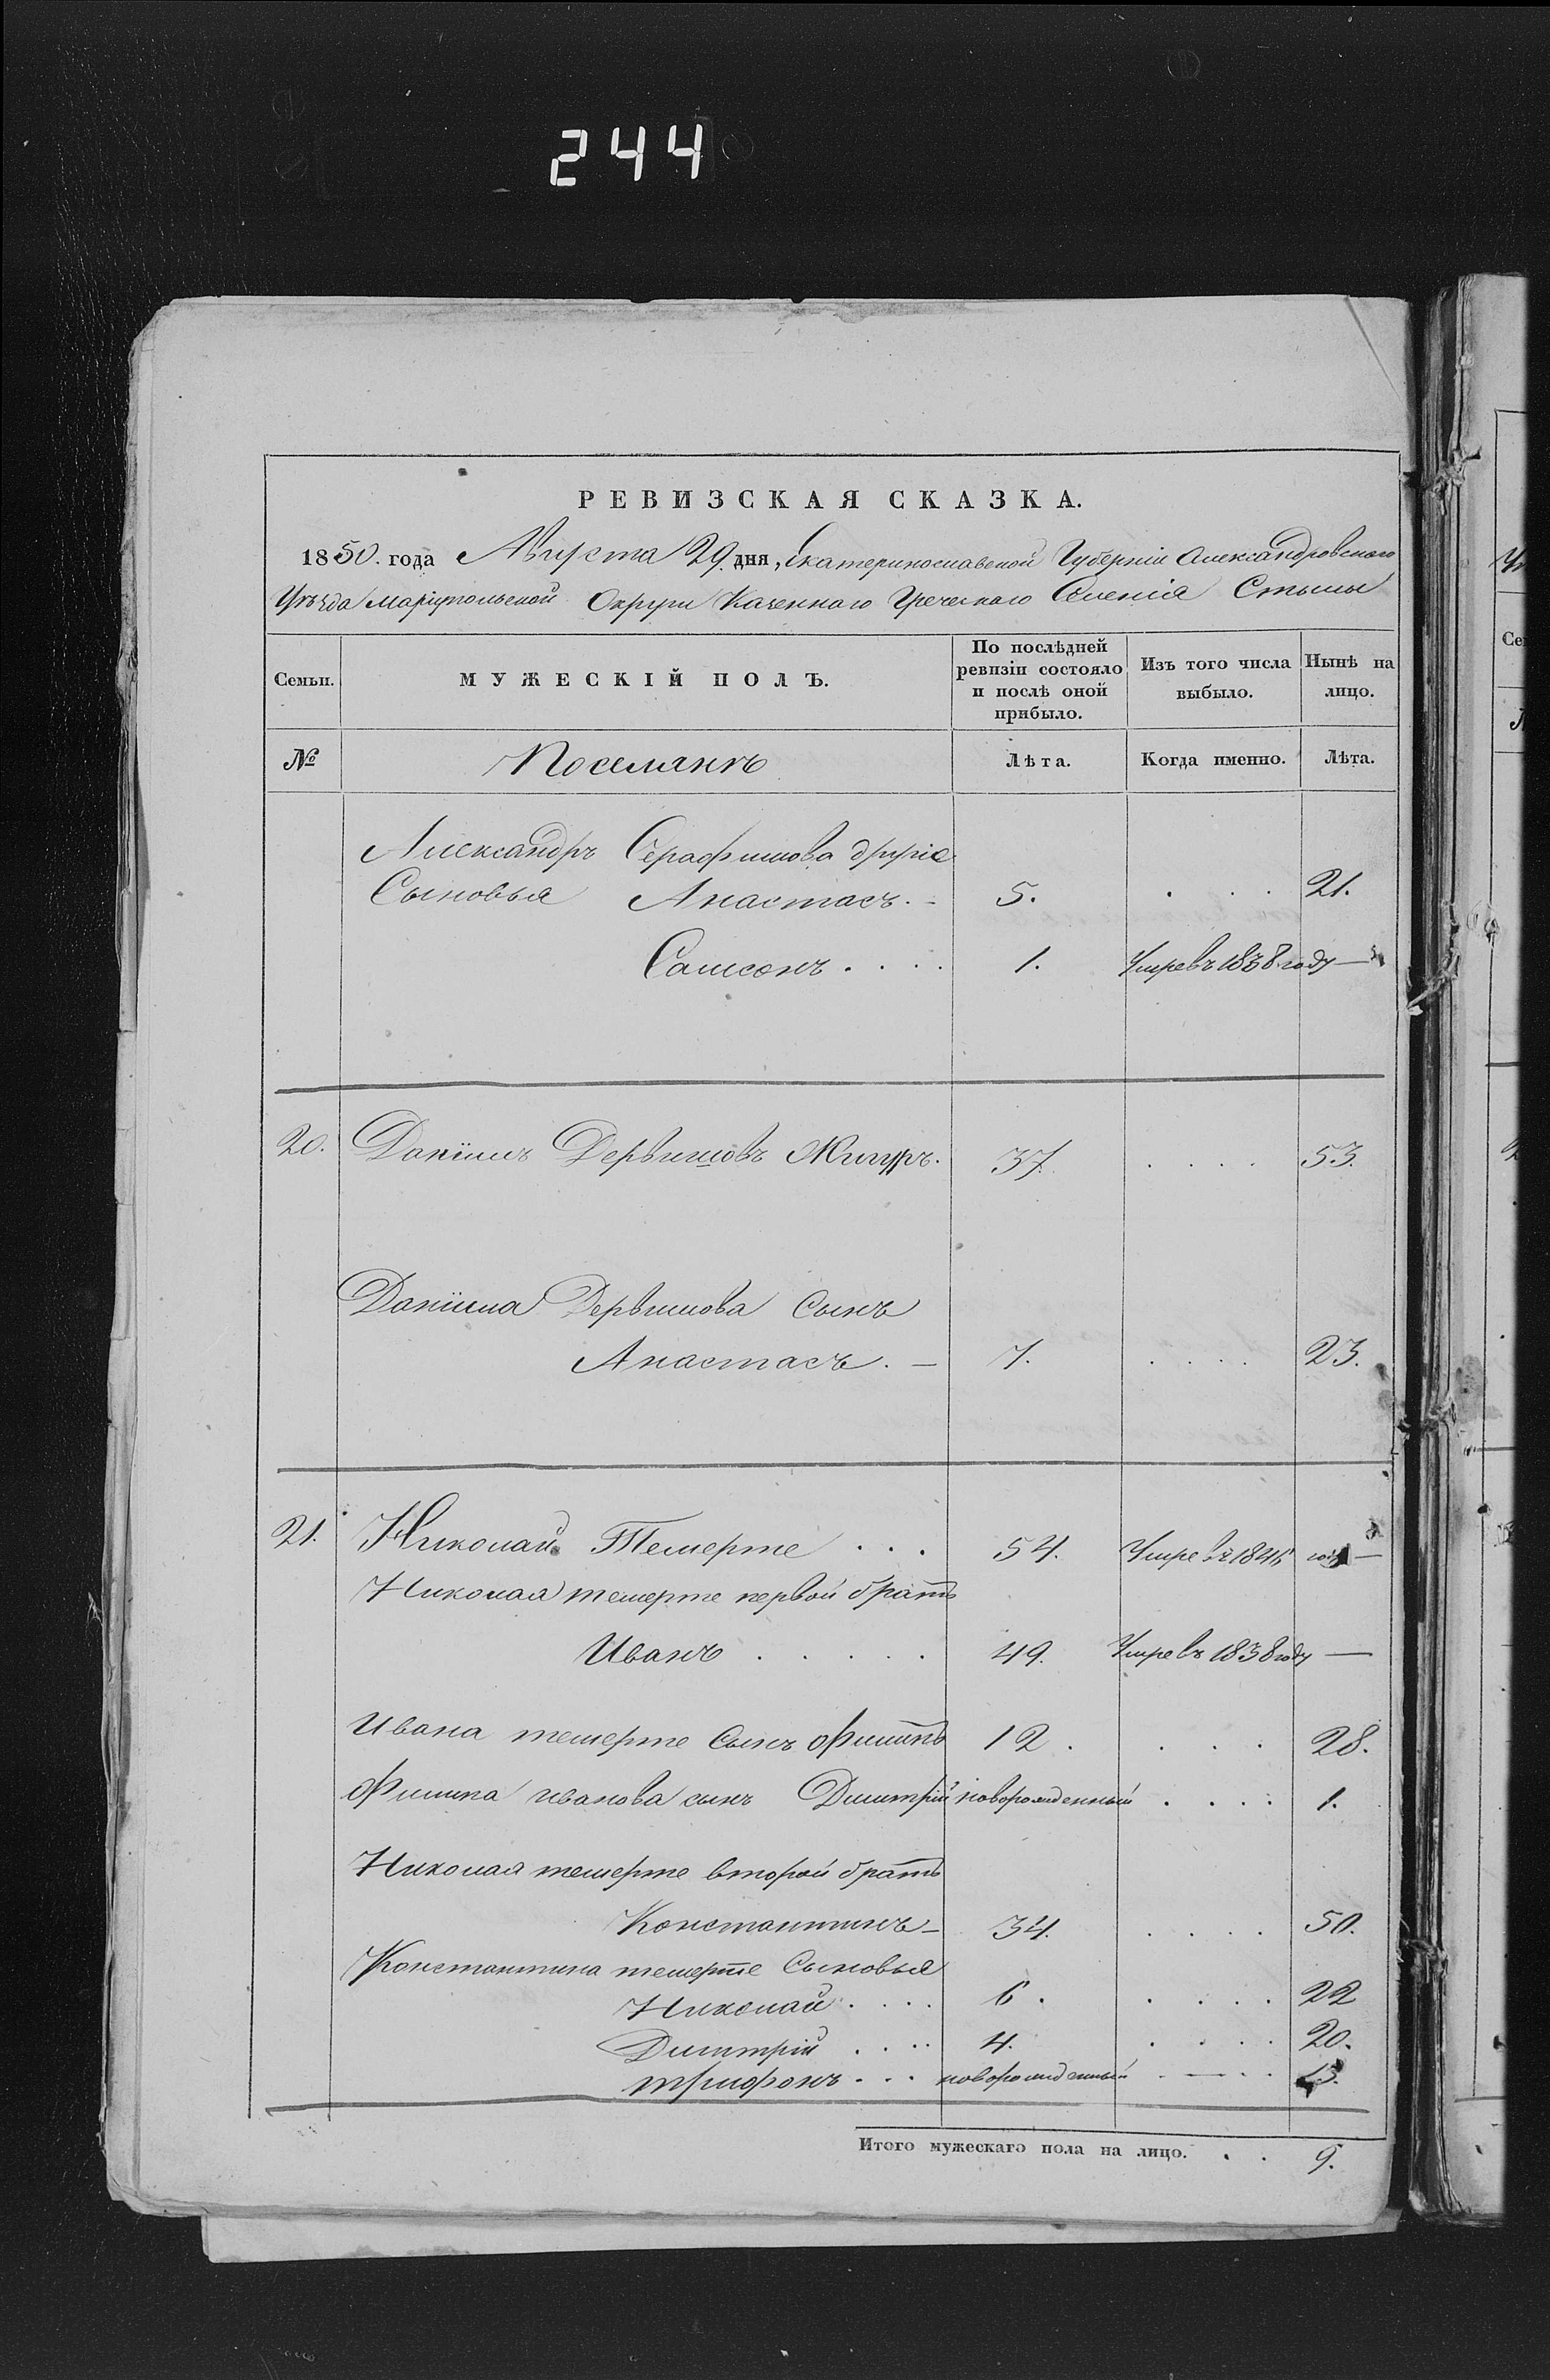 244
РЕВИЗСКАЯ СКАЗКА.
1850. года Августа 29. дня, Екатеринославской Губерніи Александровского
Уѣзда Маріупольской Округи Казенного Греческого Селенія Стылы
Семьи. МУЖЕСКІЙ ПОЛЪ. По послѣдней ревизіи состояло и послѣ оной прибыло. Изъ того числа выбыло. Нынѣ на лицо.
№ Поселянъ Лѣта. Когда именно. Лѣта.
Александръ Серафимова другіе
Сыновья Анастасъ. - 5. . . . 21.
Самсонъ . . . . 1. Умре въ 1838 году —
20. Даніилъ Дервишовъ 37. . . . . 53.
Даніила Дервишова Сынъ
Анастасъ . — 7. . . . . 23.
21. Николай Темерте . . . 54. Умре въ —
Николая темерте первой братъ
Иванъ . . . . . 49. Умре въ 1838 году —
Ивана темерте Сынъ Филипъ 12 . . . . 28.
Филипа иванова сынъ Димитрій новорожденный . . . . 1.
Николая темерте второй братъ
Константинъ - 34. . . . . 50.
Константина темерте Сыновья
Николай . . . . 6 . . . . . 22
Димитрій . . . . 4. . . . . 20.
трифонъ . . . новорожденный . — . .
Итого мужескаго пола на лицо. . . 9.